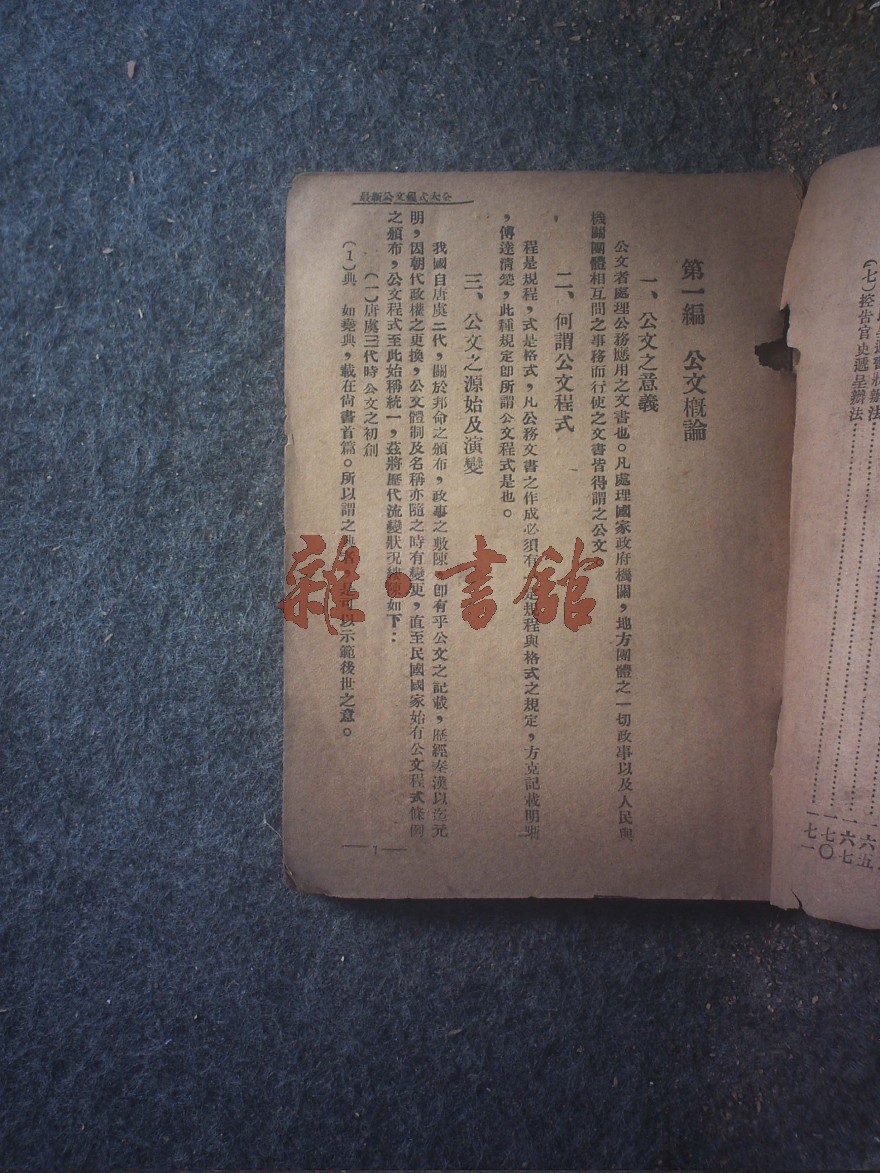 最新公文程式大全
第一編　公文概論
一、公文之意義
公文者處理公務應用之文書也。凡處理國家政府機關，地方團體之一切政事以及人民與
機關團體相互間之事務而行使之文書皆得謂之公文
二、何謂公文程式
程是規程，式是格式，凡公務文書之作成必須有定規程與格式之規定，方克記載明晰
，傳達清楚，此種規定卽所謂公文程式是也。
三、公文之源始及演變
我國自唐虞二代，關於邦命之頒布，政事之敷陳，卽有乎公文之記載，歷經秦漢以迄元
明，因朝代政權之更換，公文體制及名稱亦隨之時有變更，直至民國國家始有公文程式條例
之頒布，公文程式至此始稱統一，茲將歷代流變狀况陳如下：
（一）唐虞三代時公文之初創
（1）典　如堯典，載在尚書首篇。所以謂之典者，是可以示範後世之意。
1
（七）控告官吏遞呈辦法
六五
六七
七〇
七一
雜·書館